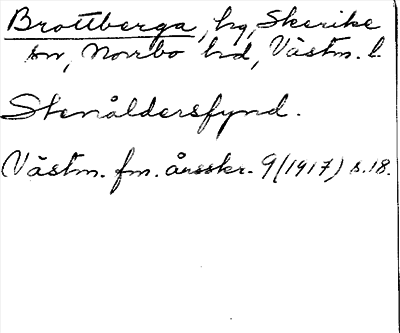 Brottberga, hg, Skerike
sn, Norrbo hd, Västm. l.
Stenåldersfynd.
Västm. fm. årsskr. 9 (1917) s. 18.